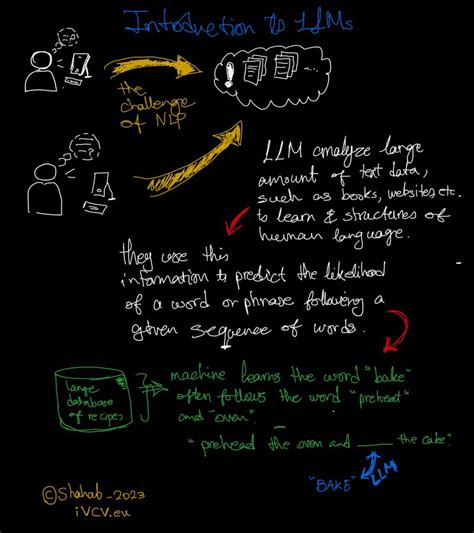 Introduction to LLMs
the
challenge
of NLP
!
LLM analyze large
amount of text data,
such as books, websites, etc.
to learn & structures of
human language.
they use this
information to predict the likelihood
of a word or phrase following a
given sequence of words.
large
database
of recipes
machine learns the word "bake"
often follows the word "preheat"
and "oven".
"prehead the oven and ____ the cake."
"BAKE"
LLM
©Shahab_2023
iVCV.eu